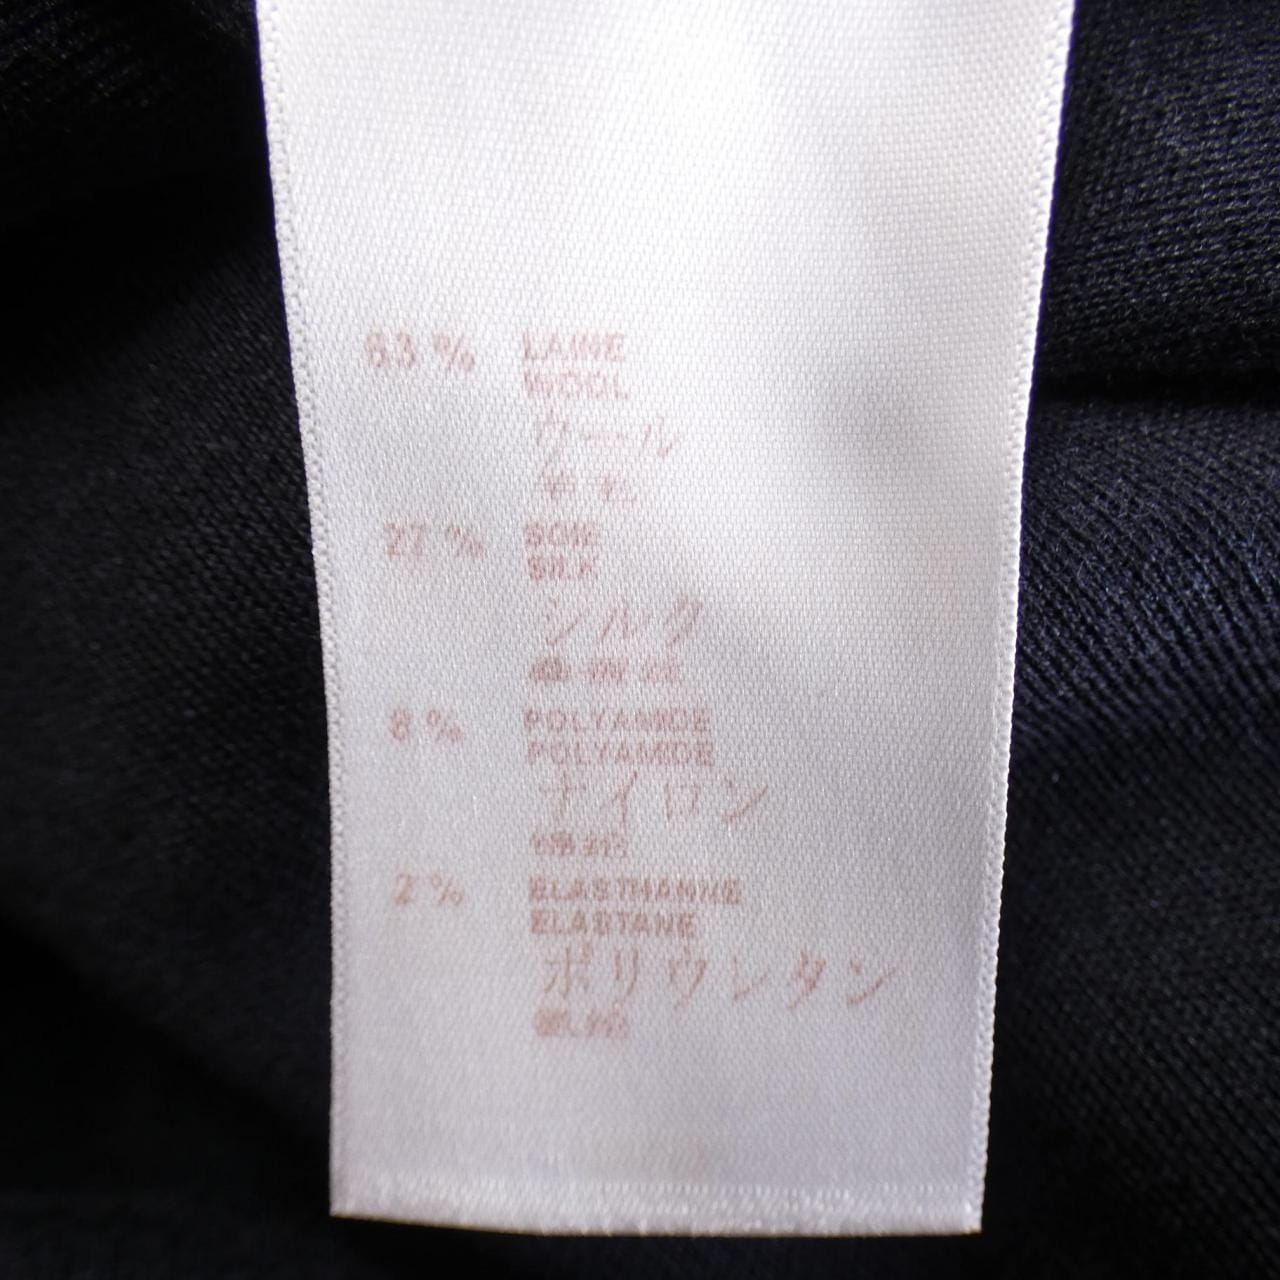 63 % LAINE
WOOL
ウール
羊毛
27 % SOIE
SILK
シルク
8 % POLYAMIDE
POLYAMIDE
ナイロン
2 % ELASTHANNE
ELASTANE
ポリウレタン